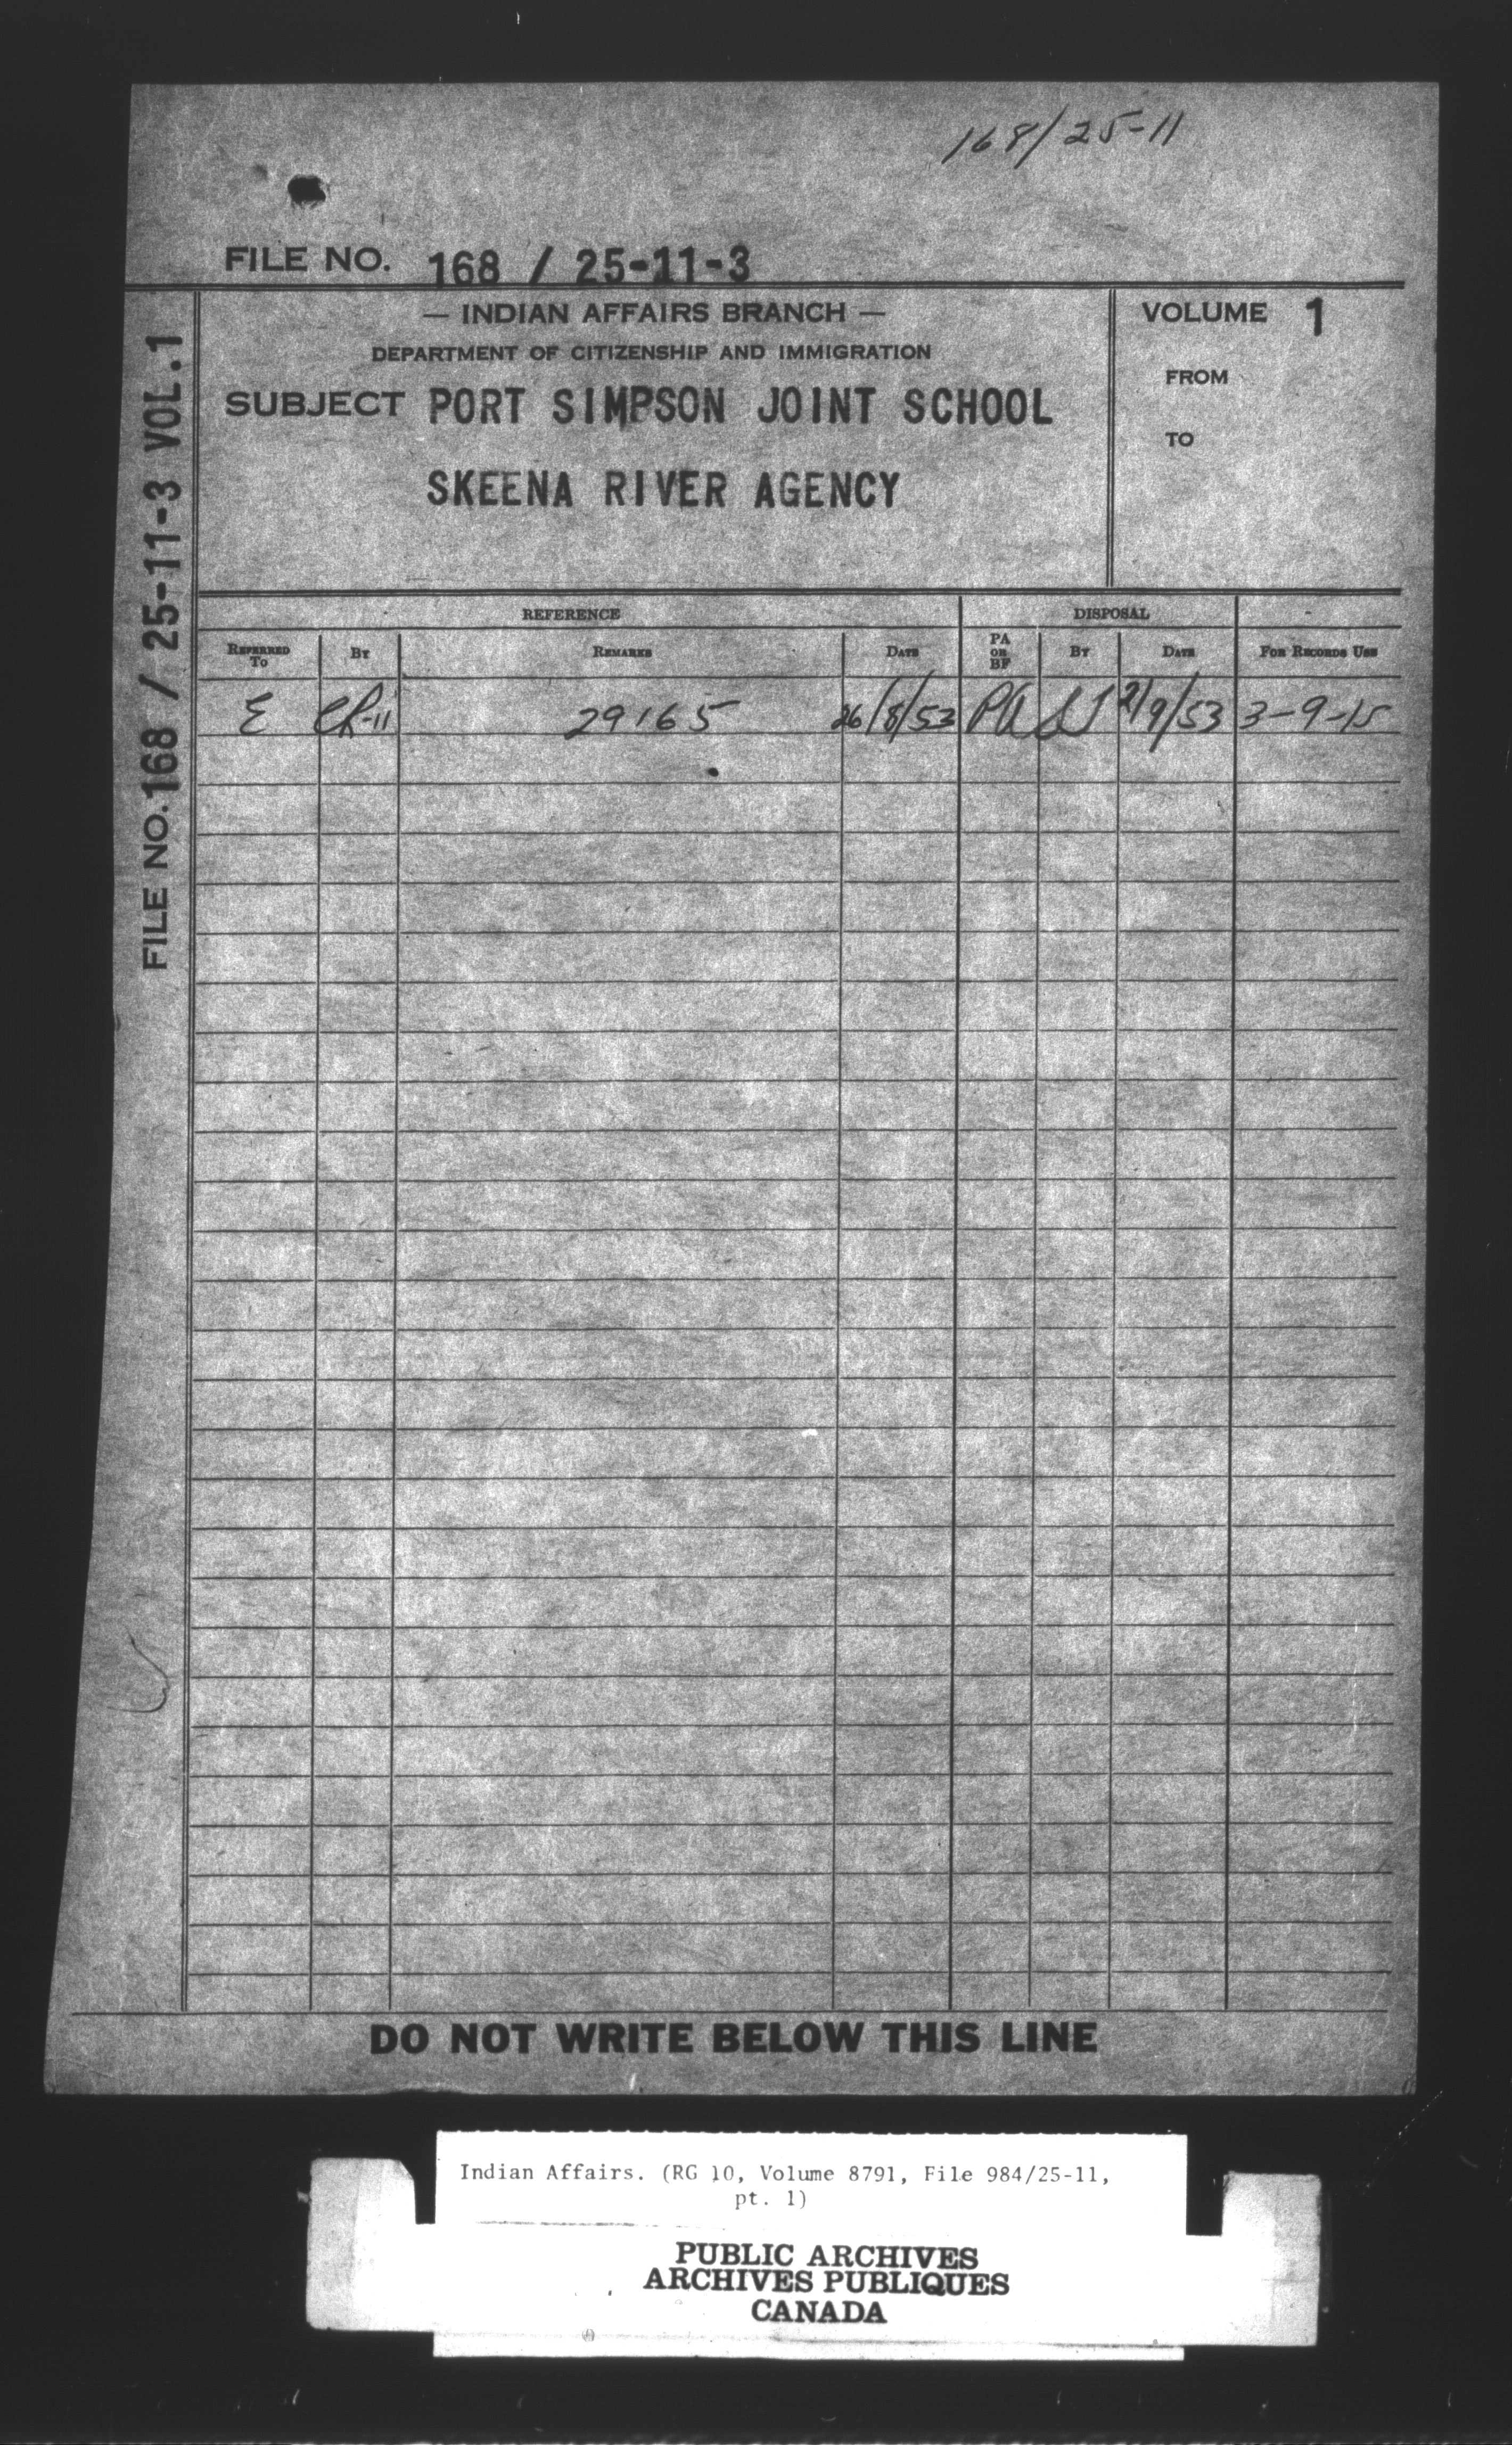 168/25-11
FILE NO. 168 / 25-11-3
— INDIAN AFFAIRS BRANCH —
DEPARTMENT OF CITIZENSHIP AND IMMIGRATION
SUBJECT PORT SIMPSON JOINT SCHOOL
SKEENA RIVER AGENCY
VOLUME 1
FROM
TO
FILE NO. 168 / 25-11-3 VOL.1
REFERENCE DISPOSAL
REFERRED TO BY REMARKS DATE PA OR BF BY DATE FOR RECORDS USE
E 29165 26/8/53 PA 2/9/53 3-9-15
DO NOT WRITE BELOW THIS LINE
Indian Affairs. (RG 10, Volume 8791, File 984/25-11,
pt. 1)
PUBLIC ARCHIVES
ARCHIVES PUBLIQUES
CANADA